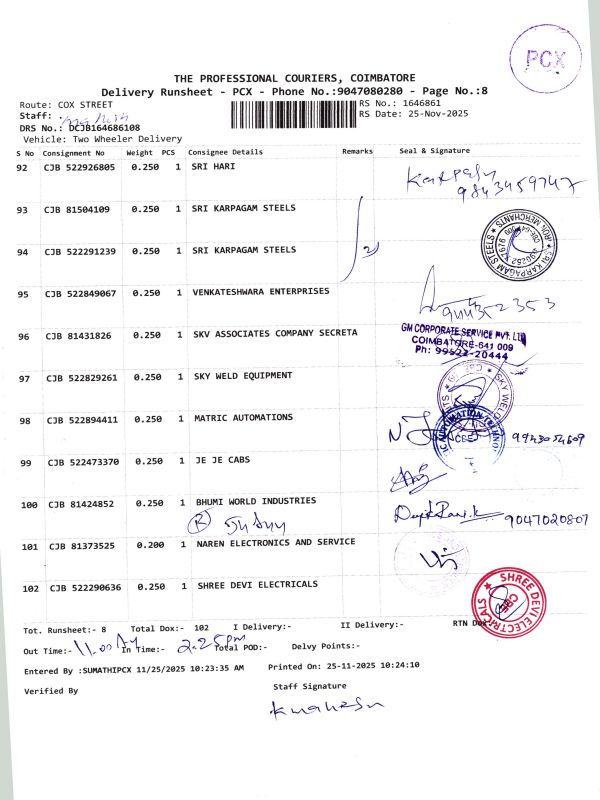 PCX
THE PROFESSIONAL COURIERS, COIMBATORE
Delivery Runsheet - PCX - Phone No.:9047080280 - Page No.:8
Route: COX STREET
RS No.: 1646861
Staff: .
RS Date: 25-Nov-2025
DRS No.: DCJB164686108
Vehicle: Two Wheeler Delivery
S No Consignment No Weight PCS Consignee Details Remarks Seal & Signature
92 CJB 522926805 0.250 1 SRI HARI
9843459747
93 CJB 81504109 0.250 1 SRI KARPAGAM STEELS
94 CJB 522291239 0.250 1 SRI KARPAGAM STEELS 2
SRI KARPAGAM STEELS
95 CJB 522849067 0.250 1 VENKATESHWARA ENTERPRISES
96 CJB 81431826 0.250 1 SKV ASSOCIATES COMPANY SECRETA
GM CORPORATE SERVICE PVT. LTD
COIMBATORE-641 009
Ph: 99522-20444
97 CJB 522829261 0.250 1 SKY WELD EQUIPMENT
SKY WELD
98 CJB 522894411 0.250 1 MATRIC AUTOMATIONS
CBE
99 CJB 522473370 0.250 1 JE JE CABS
100 CJB 81424852 0.250 1 BHUMI WORLD INDUSTRIES
R
9047020807
101 CJB 81373525 0.200 1 NAREN ELECTRONICS AND SERVICE
102 CJB 522290636 0.250 1 SHREE DEVI ELECTRICALS
SHREE DEVI ELECTRICALS
CBE
Tot. Runsheet:- 8 Total Dox:- 102 I Delivery:- II Delivery:- RTN Dox:-
Out Time:- 11.00 In Time:- 2.25pm Total POD:- Delvy Points:-
Entered By :SUMATHIPCX 11/25/2025 10:23:35 AM Printed On: 25-11-2025 10:24:10
Verified By Staff Signature